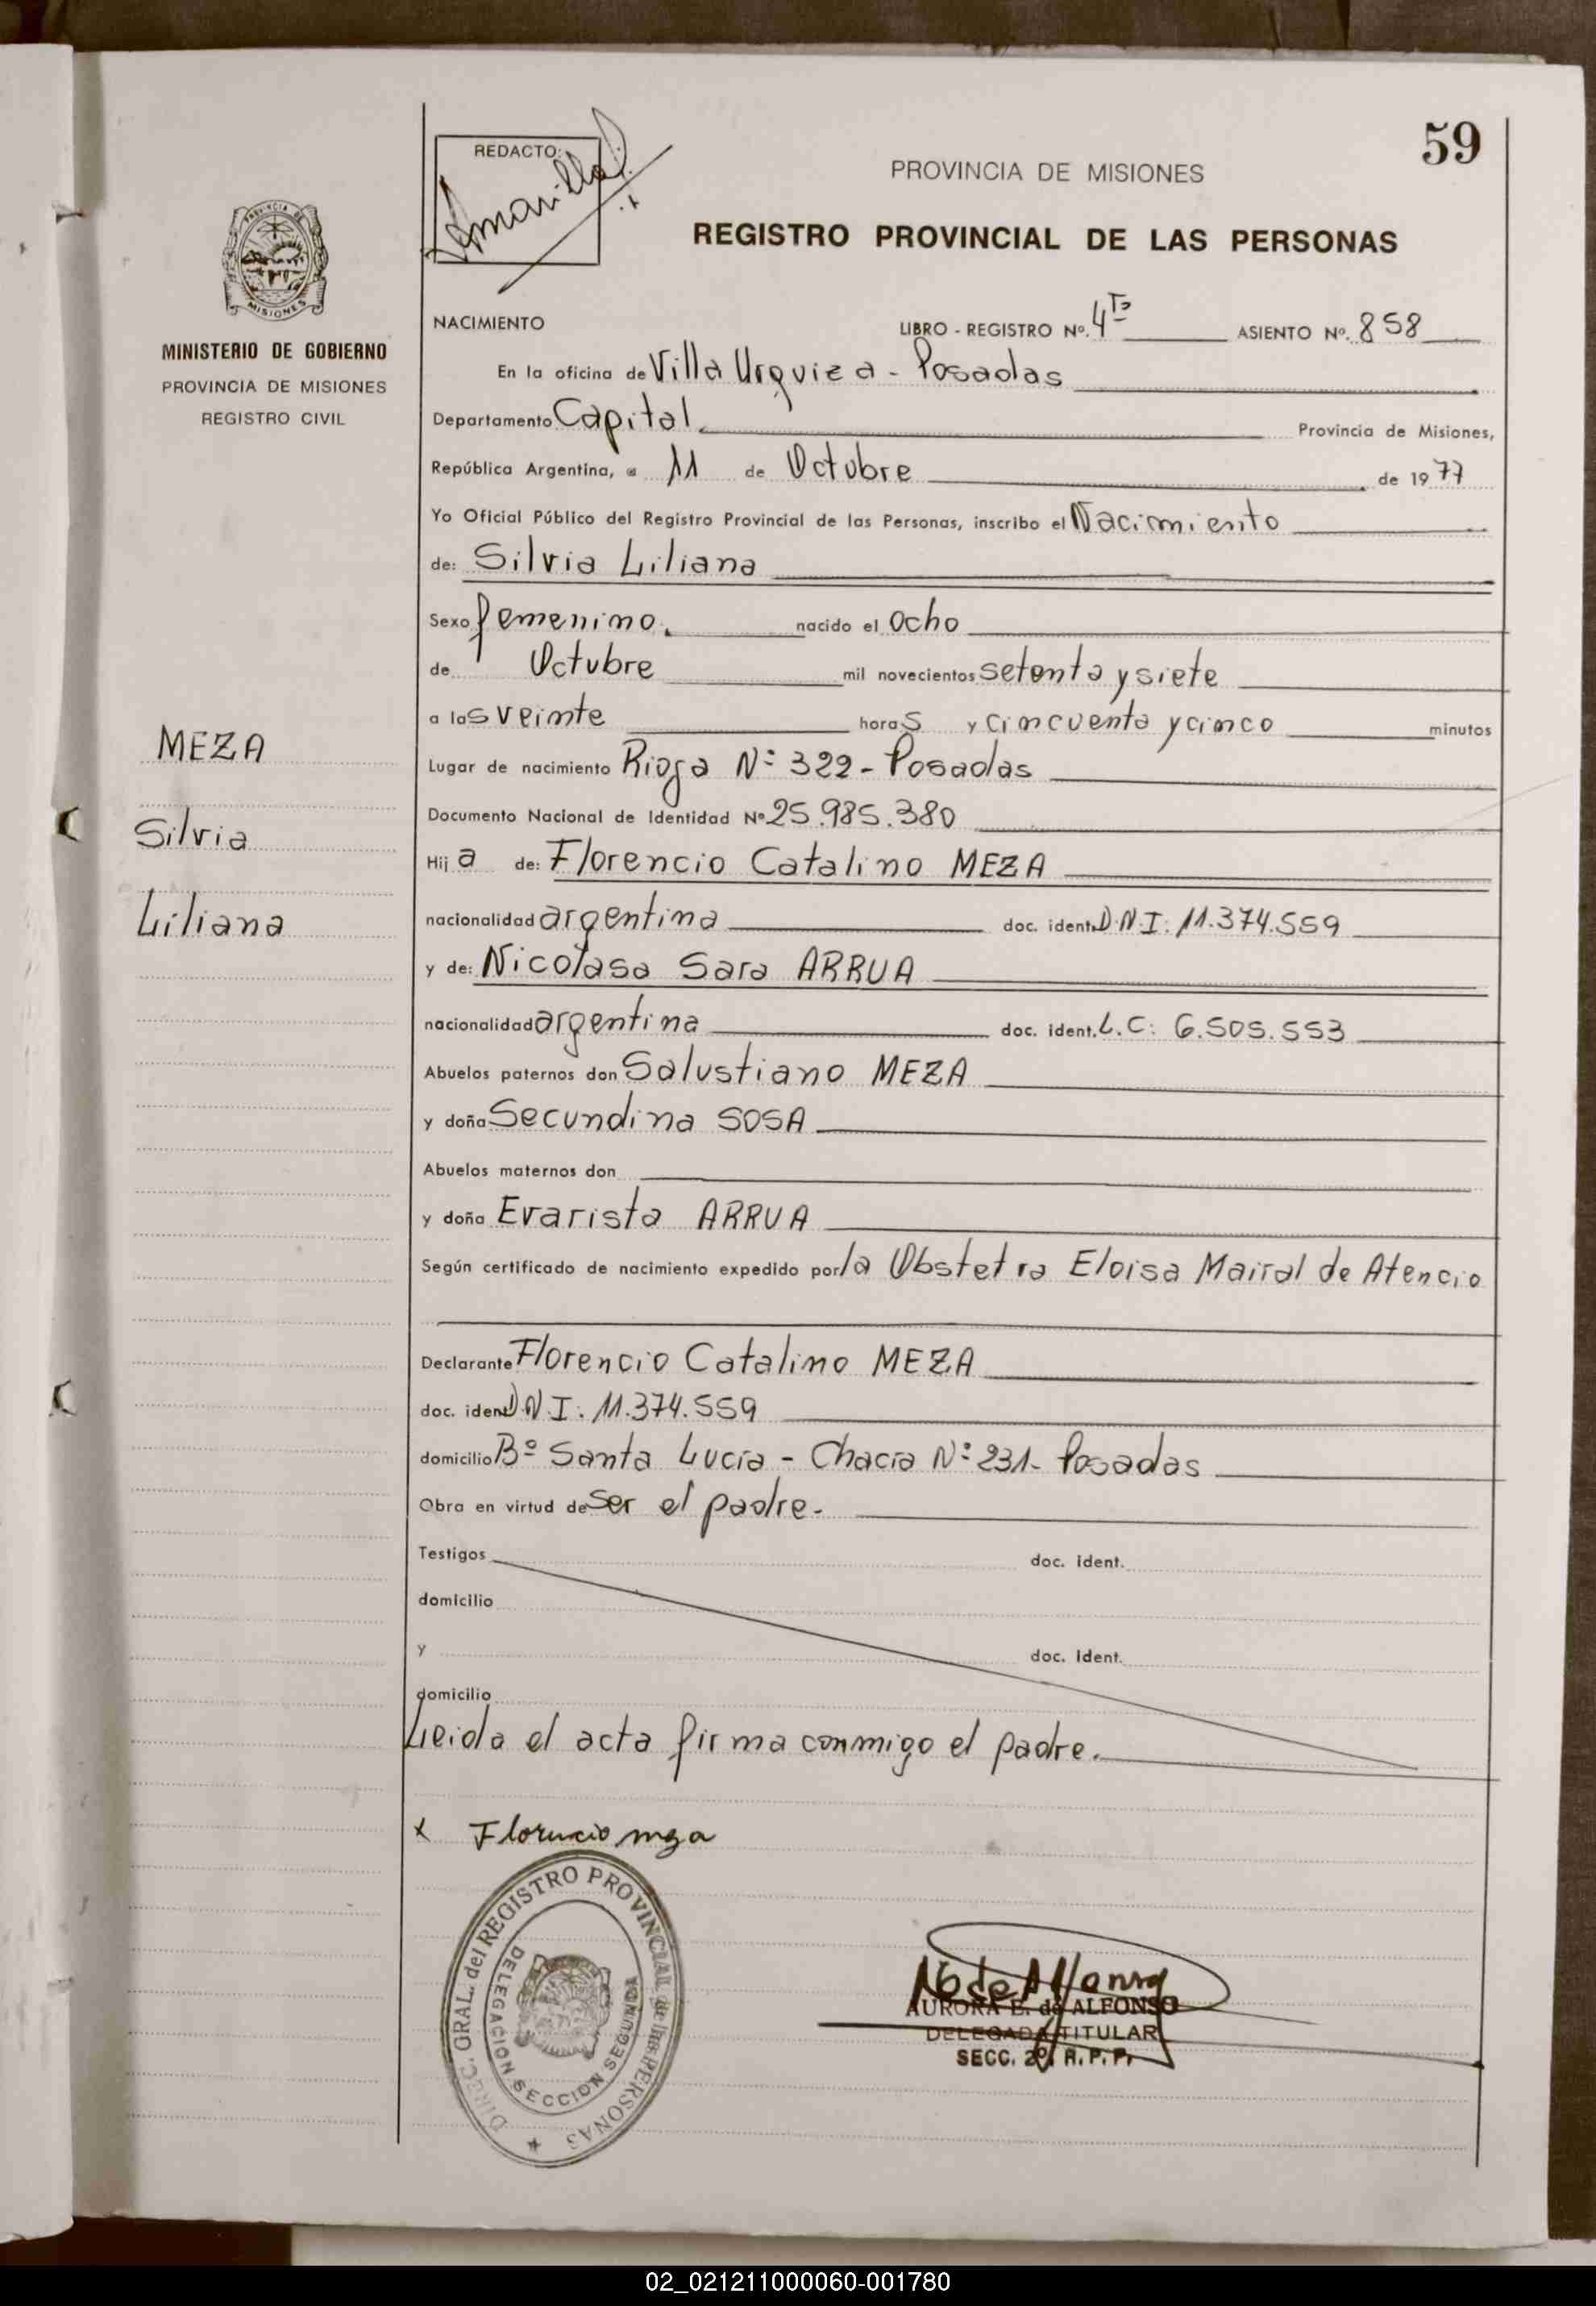 59
REDACTO:
PROVINCIA DE MISIONES
REGISTRO PROVINCIAL DE LAS PERSONAS
PROVINCIA DE
MISIONES
MINISTERIO DE GOBIERNO
PROVINCIA DE MISIONES
REGISTRO CIVIL
MEZA
Silvia
Liliana
NACIMIENTO LIBRO - REGISTRO Nº. 4To ASIENTO Nº. 858
En la oficina de Villa Urquiza - Posadas
Departamento Capital Provincia de Misiones,
República Argentina, a 11 de Octubre de 1977
Yo Oficial Público del Registro Provincial de las Personas, inscribo el Nacimiento
de: Silvia Liliana
Sexo femenino. nacido el ocho
de Octubre mil novecientos setenta y siete
a las veinte horas y cincuenta y cinco minutos
Lugar de nacimiento Rioja Nº 322 - Posadas
Documento Nacional de Identidad Nº 25.985.380
Hija de: Florencio Catalino MEZA
nacionalidad argentina doc. ident. D.N.I: 11.374.559
y de: Nicolasa Sara ARRUA
nacionalidad argentina doc. ident. L.C: 6.505.553
Abuelos paternos don Salustiano MEZA
y doña Secundina SOSA
Abuelos maternos don
y doña Evarista ARRUA
Según certificado de nacimiento expedido por la Obstetra Eloisa Mairal de Atencio
Declarante Florencio Catalino MEZA
doc. ident D.N.I: 11.374.559
domicilio Bº Santa Lucía - Chacra Nº 231- Posadas
Obra en virtud de ser el padre.
Testigos doc. ident.
domicilio
y doc. ident.
domicilio
Leida el acta firma conmigo el padre.
x Florencio meza
DIREC. GRAL. del REGISTRO PROVINCIAL de las PERSONAS
DELEGACION SECCION SEGUNDA
AURORA E. de ALFONSO
DELEGADA TITULAR
SECC. 2º. R. P. P.
02_021211000060-001780